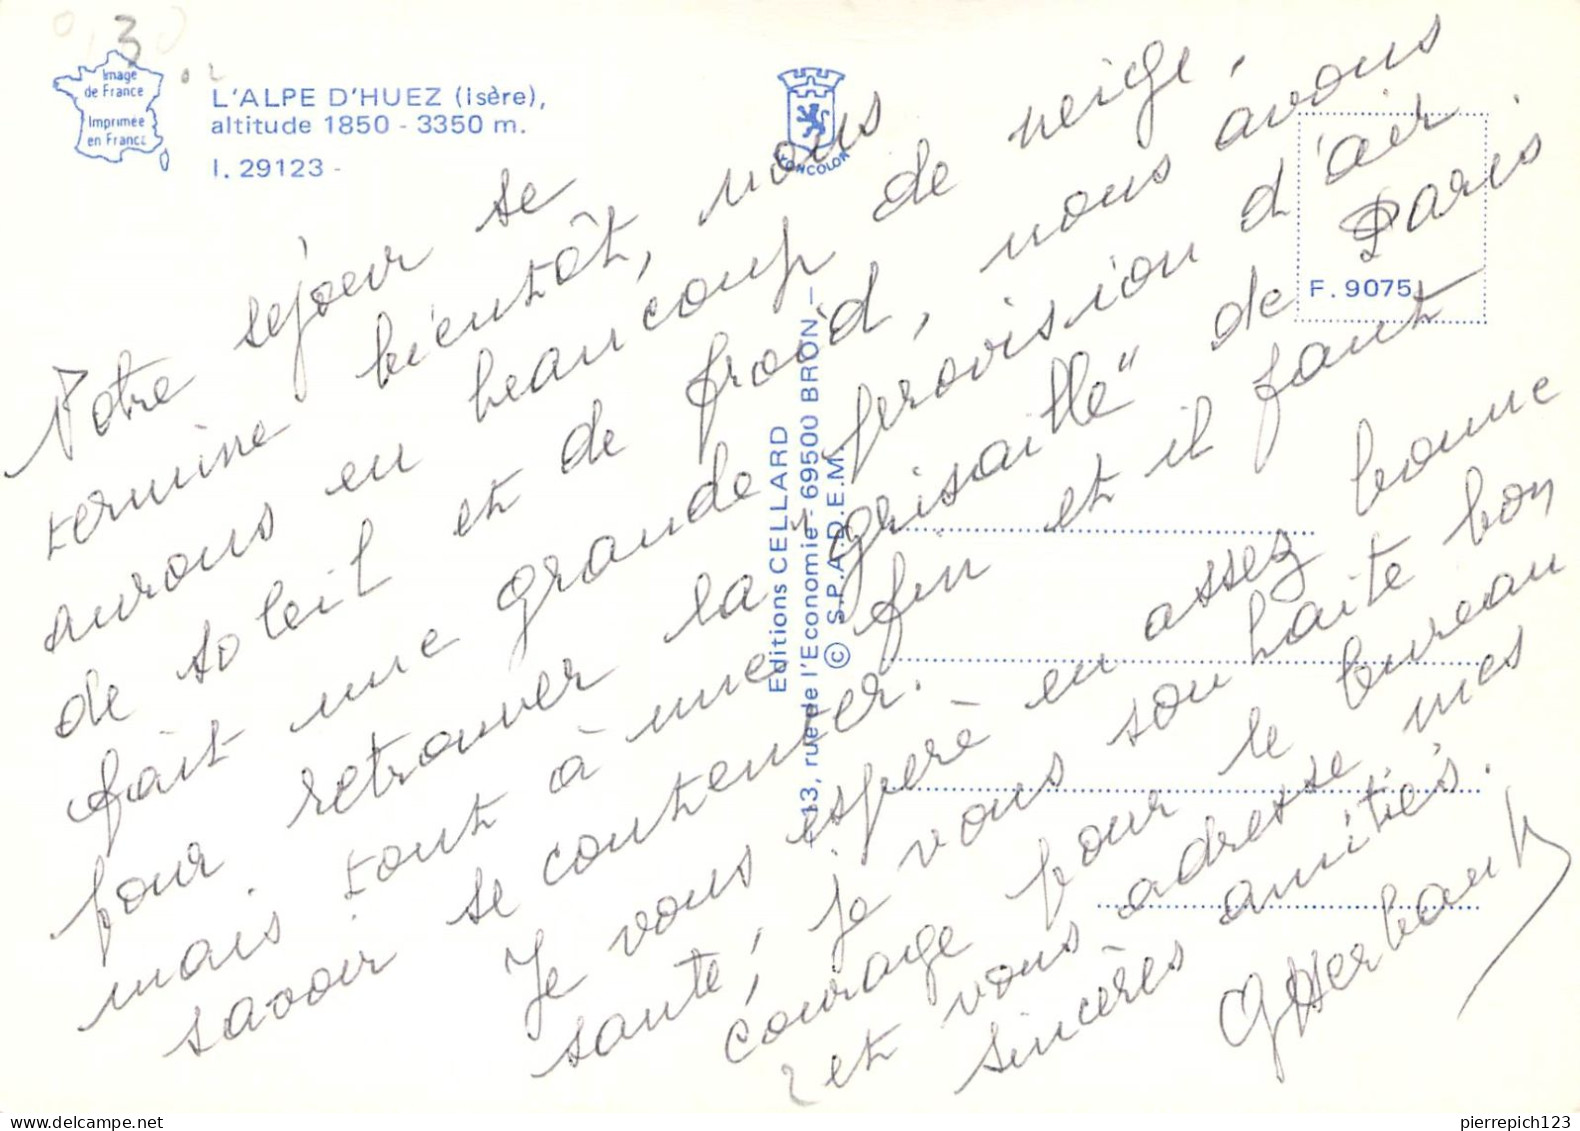 Image
de France
Imprimée
en France
L'ALPE D'HUEZ (Isère),
altitude 1850 - 3350 m.
I. 29123 -
F. 9075
Editions CELLARD
13, rue de l'Economie - 69500 BRON -
© S.P.A.D.E.M.
Notre séjour se
termine bientôt, nous
avons eu beaucoup de neige,
de soleil et de froid, nous avons
fait une grande provision d'air
pour retrouver la "grisaille" de Paris.
mais tout à une fin et il faut
savoir se contenter.
Je vous espère en assez bonne
santé, je vous souhaite bon
courage pour le bureau
et vous adresse mes
sincères amitiés.
pierrepich123